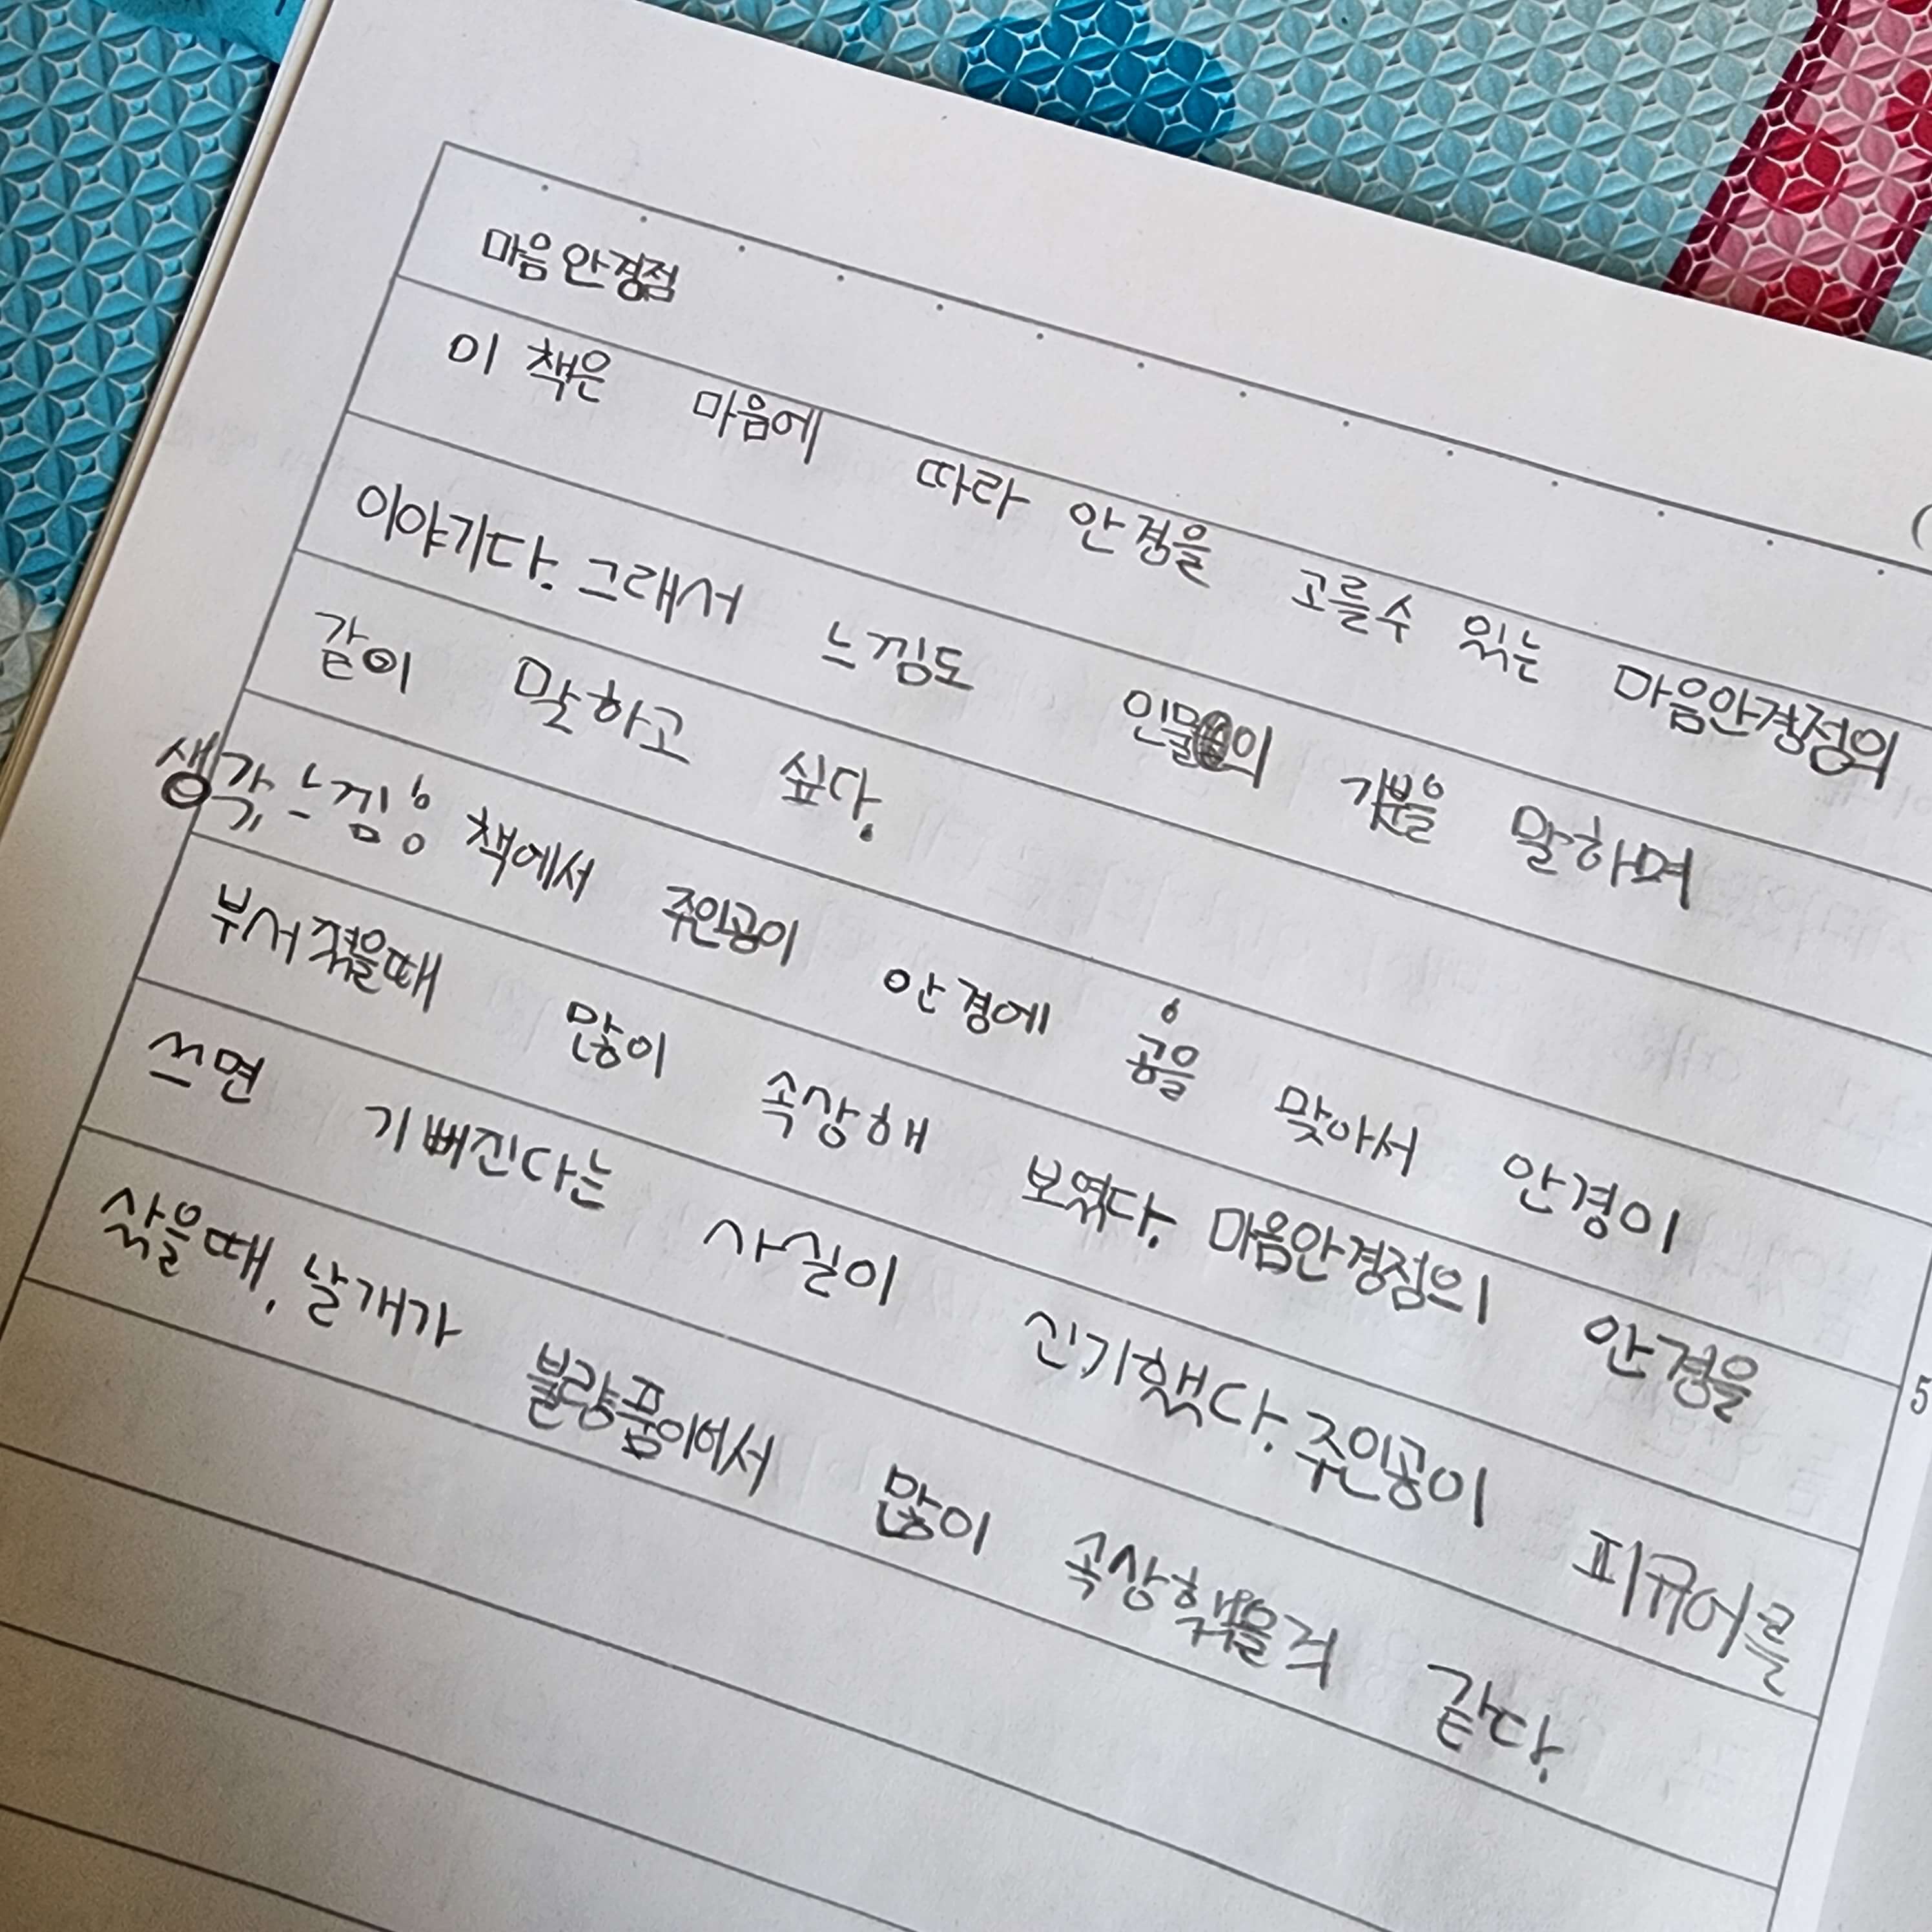 마음 안경점
이 책은 마음에 따라 안경을 고를수 있는 마음안경점의
이야기다. 그래서 느낌도 인물의 기분을 말하며
같이 말하고 싶다.
생각, 느낌: 책에서 주인공이 안경에 공을 맞아서 안경이
부서졌을때 많이 속상해 보였다. 마음안경점의 안경을
쓰면 기뻐진다는 사실이 신기했다. 주인공이 피규어를
샀을때, 날개가 불량품이여서 많이 속상했을거 같다.
5